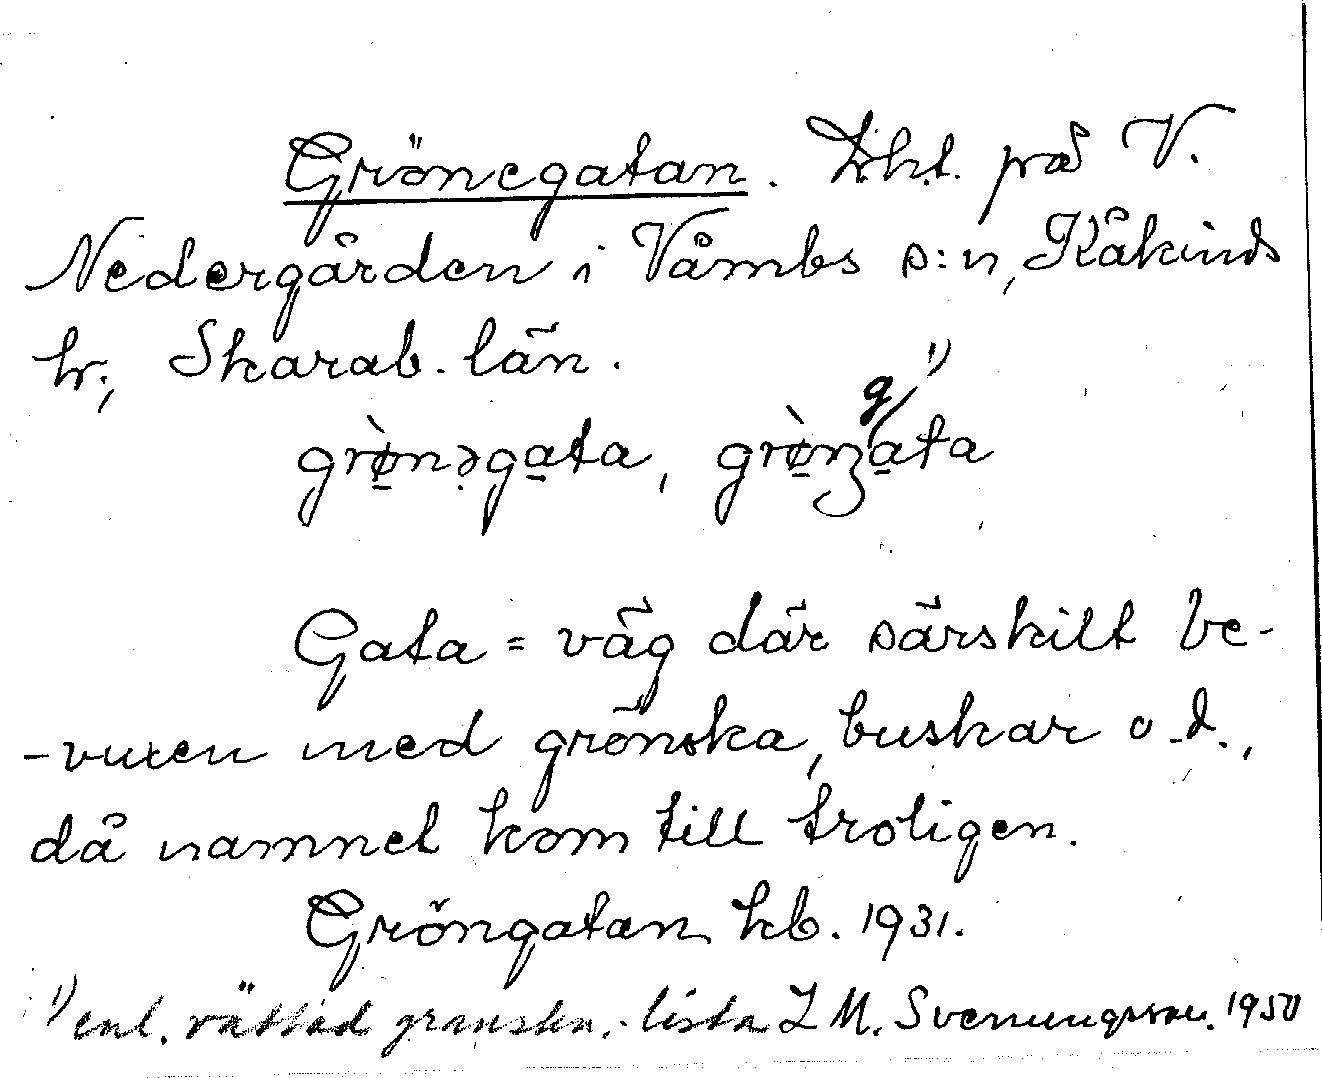 Grönegatan. Lht. på V.
Nedergården i Våmbs s:n, Kåkinds
hr., Skarab. län.
grø̠̀nəga̠ta, grø̠̀nga̠ta 1)
Gata = väg där särskilt be-
-vuxen med grönska, buskar o.d.,
då namnet kom till troligen.
Gröngatan kb. 1931.
1) enl. rättad granskn.-lista I M. Svenungsson. 1950